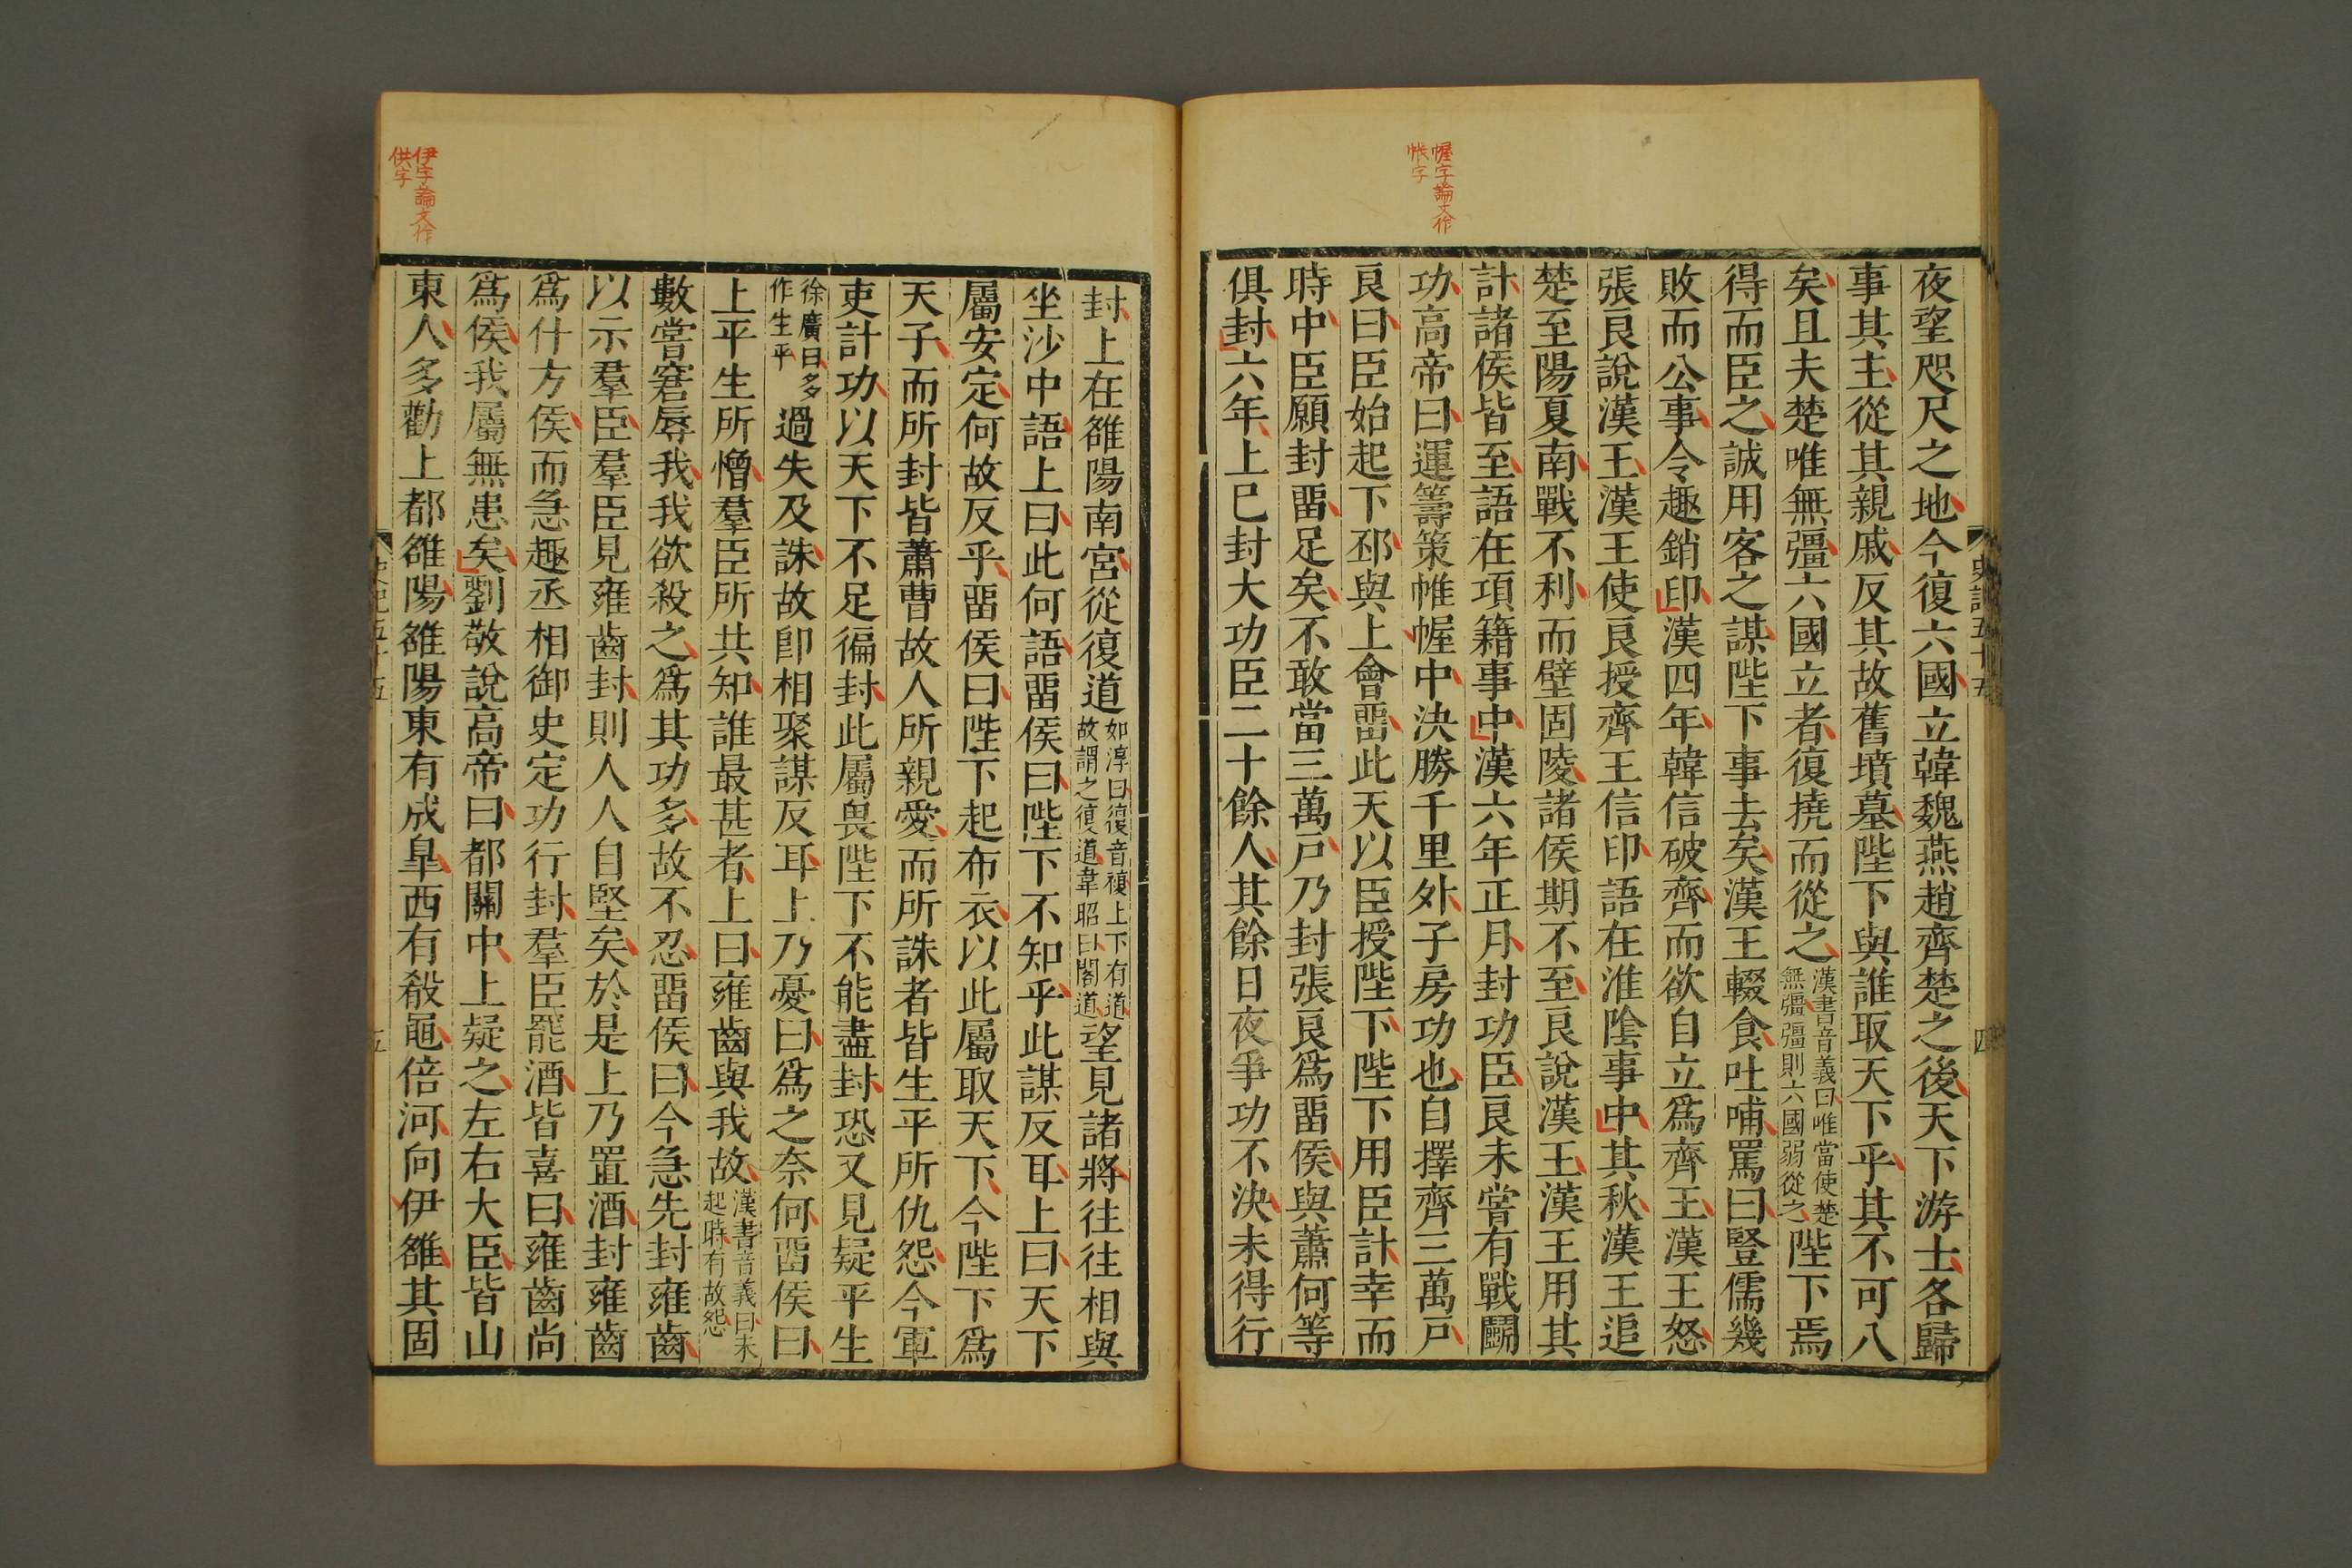 幄字論文作
帐字
夜望咫尺之地今復六國立韓魏燕趙齊楚之後天下游士各歸
事其主從其親戚反其故舊墳墓陛下與誰取天下乎其不可八
矣且夫楚唯無彊六國立者復撓而從之漢書音義曰唯當使楚無彊彊則六國弱從之陛下焉
得而臣之誠用客之謀陛下事去矣漢王輟食吐哺罵曰豎儒幾
敗而公事令趣銷印漢四年韓信破齊而欲自立爲齊王漢王怒
張良說漢王漢王使良授齊王信印語在淮陰事中其秋漢王追
楚至陽夏南戰不利而壁固陵諸侯期不至良說漢王漢王用其
計諸侯皆至語在項籍事中漢六年正月封功臣良未嘗有戰鬭
功高帝曰運籌策帷幄中決勝千里外子房功也自擇齊三萬戸
良曰臣始起下邳與上會畱此天以臣授陛下陛下用臣計幸而
時中臣願封畱足矣不敢當三萬戸乃封張良爲畱侯與蕭何等
俱封六年上已封大功臣二十餘人其餘日夜爭功不決未得行
史記五十五
四
封上在雒陽南宮從復道如淳曰復音複上下有道故謂之復道韋昭曰閣道望見諸將往往相與
坐沙中語上曰此何語畱侯曰陛下不知乎此謀反耳上曰天下
屬安定何故反乎畱侯曰陛下起布衣以此屬取天下今陛下爲
天子而所封皆蕭曹故人所親愛而所誅者皆生平所仇怨今軍
吏計功以天下不足徧封此屬畏陛下不能盡封恐又見疑平生
徐廣曰多作生平過失及誅故卽相聚謀反耳上乃憂曰爲之奈何畱侯曰
上平生所憎羣臣所共知誰最甚者上曰雍齒與我故漢書音義曰未起時有故怨
數嘗窘辱我我欲殺之爲其功多故不忍畱侯曰今急先封雍齒
以示羣臣羣臣見雍齒封則人人自堅矣於是上乃置酒封雍齒
爲什方侯而急趣丞相御史定功行封羣臣罷酒皆喜曰雍齒尚
爲侯我屬無患矣劉敬說高帝曰都關中上疑之左右大臣皆山
東人多勸上都雒陽雒陽東有成皐西有殽黽倍河向伊雒其固
伊字論文作
供字
史記五十五
五